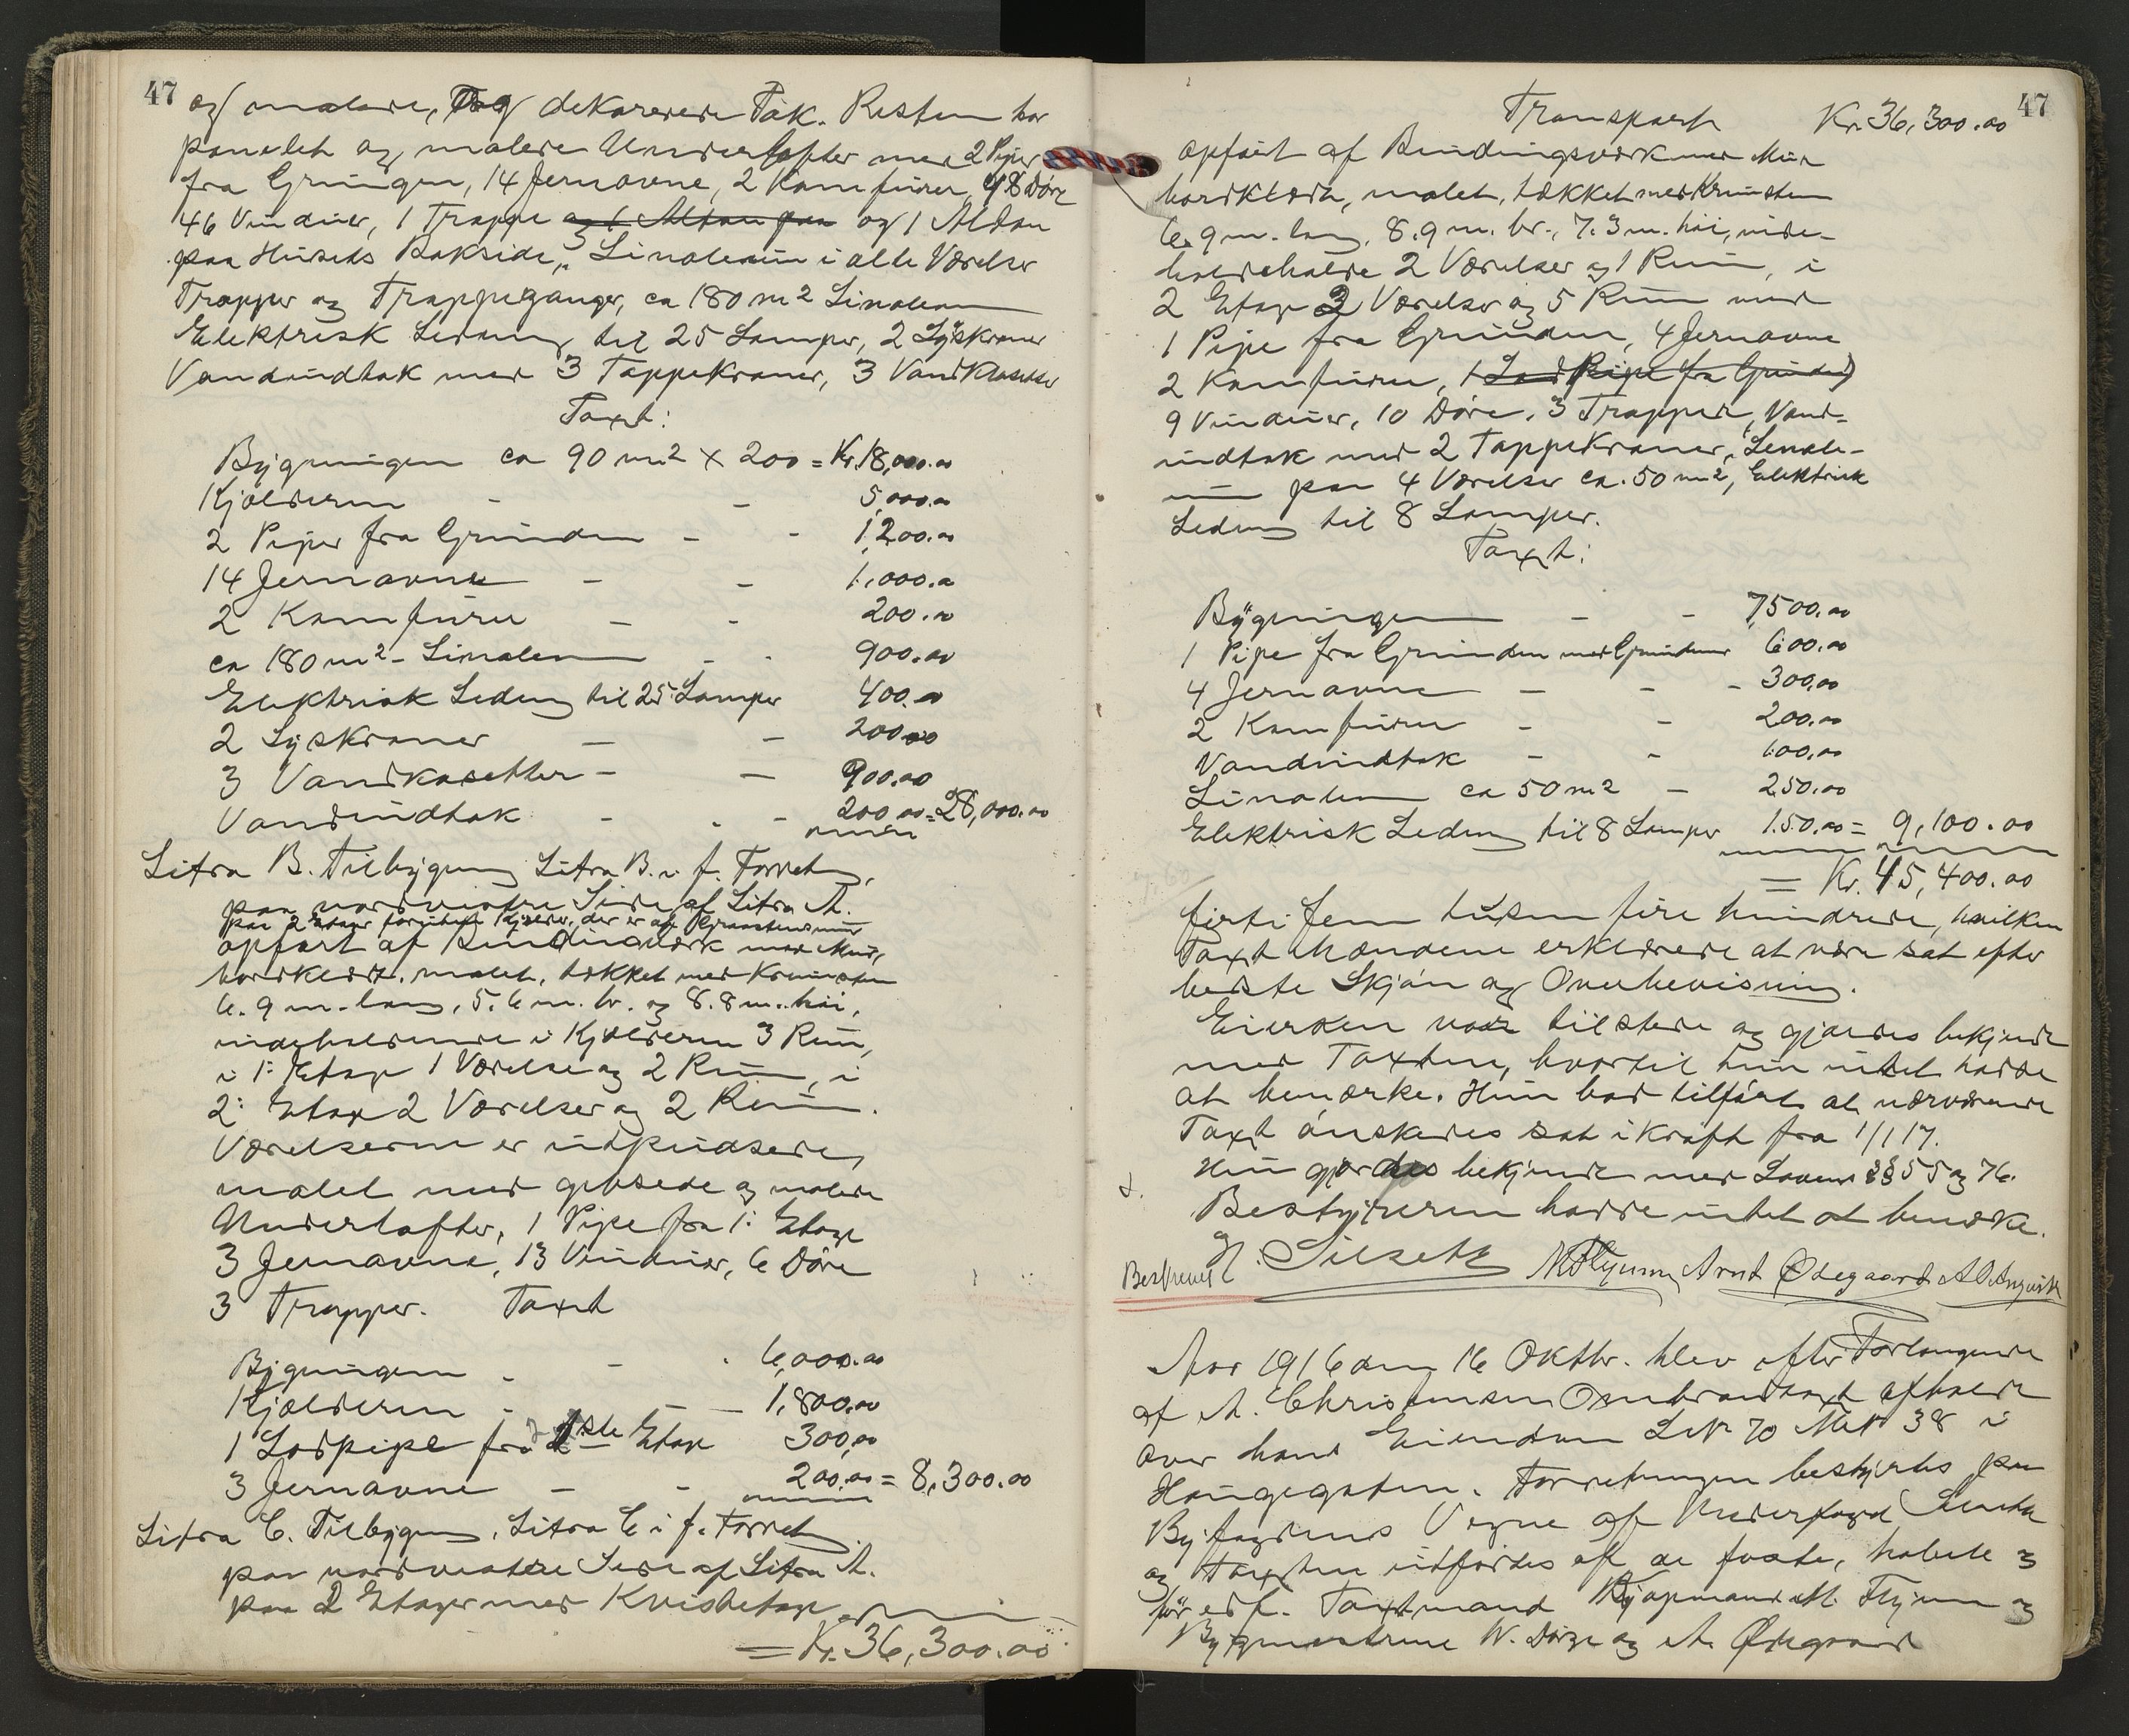 47
og malede, og dekorerede Tak. Resten har
panelet og malede Underlofter med 2 Piper
fra Grunden, 14 Jernovne, 2 Komfurer, 48 Döre
46 Vinduer, 1 Trappe og 1 Altan paa og 1 Altan
paa Husets Bakside, Linoleum i alle Værelser
Trapper og Trappegange, ca 180 m2 Linoleum
Elektrisk Ledning til 25 Lamper, 2 Lyskroner
Vandindtak med 3 Tappekraner, 3 Vandklosetter
Taxt:
Bygningen ca 90 m2 x 200 = Kr. 18,000.00
Kjælderen - - 5,000.00
2 Piper fra Grunden - - 1,200.00
14 Jernovne - - 1,000.00
2 Komfurer - - 200.00
ca 180 m2 - Linoleum - - 900.00
Elektrisk Ledning til 25 Lamper 400.00
2 Lyskroner - - 200.00
3 Vandkasetter - - 900.00
Vandindtak - - - 200.00 = 28,000.00
Litra B. Tilbygning Litra B. i f. Forretn.
paa nordvestre Side af Litra A.
paa 2 Etager foruden Kjælder, der er af Graastensmur
opført af Bindingsværk med Mur,
bordklædt, malet, tækket med Krumsten
6.9 m. lang, 5.6 m. br. og 8.8 m. høi,
indeholdende i Kjælderen 3 Rum,
i 1: Etage 1 Værelse og 2 Rum, i
2: Etage 2 Værelser og 2 Rum.
Værelserne er utpudsede,
malet med gibsede og malede
Underlofter, 1 Pipe fra 1: Etage
3 Jernovne, 13 Vinduer, 6 Döre
3 Trapper. Taxt
Bygningen - - 6,000.00
Kjælderen - - 1,800.00
1 Lodpipe fra 1ste Etage 300.00
3 Jernovne - - 200.00 = 8,300.00
Litra C. Tilbygning, Litra C i f. Forretn.
paa nordvestre Side af Litra A.
paa 2 Etager med Kvistetage
= Kr. 36,300.00
47
Transport Kr. 36,300.00
opført af Bindingsværk med Mur
bordklædt, malet, tækket med Krumsten
6.9 m. lang, 8.9 m. br., 7.3 m. høi, inde-
holdende 2 Værelser og 1 Rum, i
2 Etage 3 Værelser og 5 Rum med
1 Pipe fra Grunden, 4 Jernovne
2 Komfurer, 1 Lod Pipe fra Grunden)
9 Vinduer, 10 Döre, 3 Trapper, Vand-
indtak med 2 Tappekraner, Linole-
um paa 4 Værelser ca. 50 m2, Elektrisk
Ledning til 8 Lamper.
Taxt:
Bygningen - - 7,500.00
1 Pipe fra Grunden med Grunden 600.00
4 Jernovne - - - 300.00
2 Komfurer - - 200.00
Vandindtak - - 100.00
Linoleum ca 50 m2 - 250.00
Elektrisk Ledning til 8 Lamper 150.00 = 9,100.00
= Kr. 45,400.00
firti fem tusen fire hundrede, hvilken
Taxt Mændene erklærede at være sat efter
bedste Skjön og Overbevisning.
Eieren var tilstede og gjordes bekjendt
med Taxten, hvortil hun intet havde
at bemærke. Hun bad tilført at nærværende
Taxt önskedes sat i kraft fra 1/1 17.
Hun gjordes bekjendt med Lovens §§ 55 og 76.
Bestyreren havde intet at bemærke.
Silseth M Flynum Arnt Ødegaard
Beskrevet
Aar 1916 den 16 Oktbr. blev efter Forlangende
af A. Christensen Ombrandtaxt afholdt
over hans Eiendom LNr 70 MNr 38 i
Haugegaten. Forretningen bestyrtes paa
Byfogdens Vegne af Underfogd
og Taxten utførtes af de faste, habile og
før edf. Taxtmænd Kjøpmand M. Flynum og
Bygmestrene N. Döge og A. Ødegaard